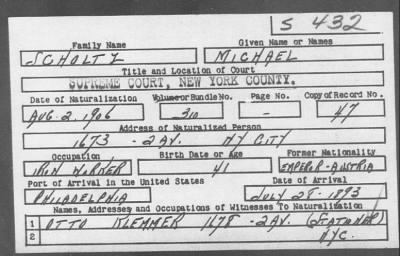 S 432
Family Name Given Name or Names
SCHOLTZ MICHAEL
Title and Location of Court
SUPREME COURT, NEW YORK COUNTY.
Date of Naturalization Volume or Bundle No. Page No. Copy of Record No.
AUG. 2, 1906 310 - 47
Address of Naturalized Person
1673 - 2 AV. NY CITY
Occupation Birth Date or Age Former Nationality
IRON WORKER 41 EMPEROR-AUSTRIA
Port of Arrival in the United States Date of Arrival
PHILADELPHIA JULY 28-1893
Names, Addresses and Occupations of Witnesses To Naturalization
1 OTTO KLEMMER 1678 - 2 AV. (STATIONER)
2 NYC.